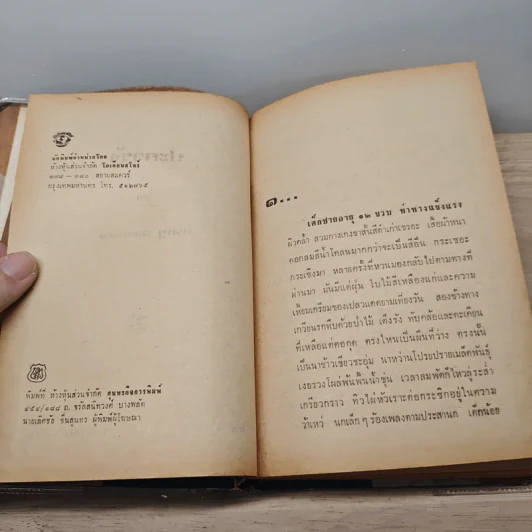 จัดพิมพ์จำหน่ายโดย
ห้างหุ้นส่วนจำกัด โอเดียนสโตร์
๒๑๘ — ๒๒๐ สยามสแควร์
กรุงเทพมหานคร โทร. ๕๑๒๗๖๕
พิมพ์ที่ ห้างหุ้นส่วนจำกัด
ถ. จรัลสนิทวงศ์ บางพลัด
ชื่นสุนทร ผู้พิมพ์ผู้โฆษณา
๑...
เด็กชายอายุ ๑๒ ขวบ ท่าทางแข็งแรง
ผิวคล้ำ สวมกางเกงขาสั้นสีดำเก่าเซรอะ เสื้อผ้าหนา
คอกลมสีน้ำโคลนมากกว่าจะเป็นสีอื่น กระเซอะ
กระเซิงมา หลายครั้งที่หวนมองกลับไปตามทางที่
ผ่านมา มันมีแต่ฝุ่น ใบไม้สีเหลืองแก่และความ
เหี้ยมเกรียมของเปลวแดดยามเที่ยงวัน สองข้างทาง
เกวียนรกทึบด้วยป่าไม้ เต็งรัง ทับคล้อและตะเคียน
ที่เหลือแต่ตอกุด ตรงไหนเป็นผืนที่ว่าง ตรงนั้น
เป็นนาข้าวเขียวชะอุ่ม นาหว่านโปรยปรายเมล็ดพันธุ์
เงยรวงโผล่พ้นพื้นน้ำชุ่ม เวลาลมพัดก็ไหวลู่ระล่ำ
เกรียวกราว ทิวไผ่หัวเราะต่อกระซิกอยู่ในความ
ว้าเหว่ นกเล็ก ๆ ร้องเพลงตามประสานก เด็กน้อย